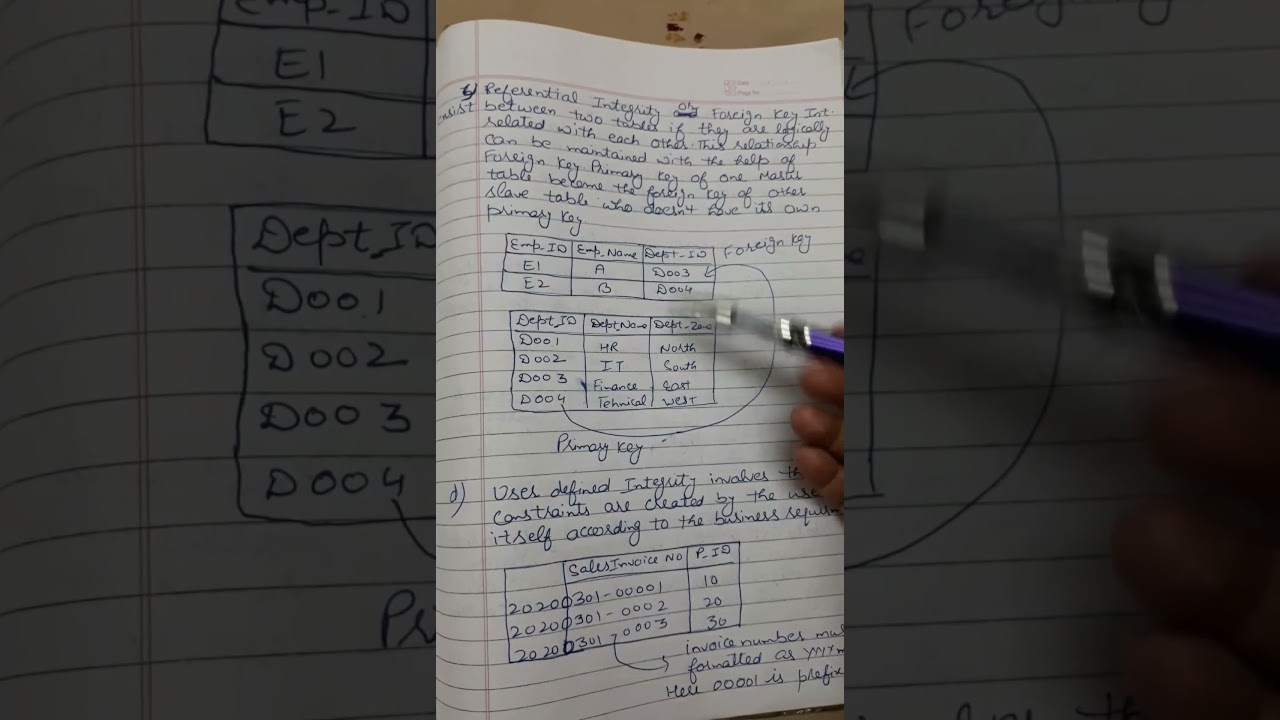 Referential Integrity or Foreign Key Int.
between two tables if they are logically
related with each other. This relationship
can be maintained with the help of
Foreign Key Primary Key of one Master
table become the foreign key of other
slave table who doesn't have its own
primary key
Emp_ID Emp_Name Dept_ID Foreign Key
E1 A D003
E2 B D004
Dept_ID Dept_Name Dept_Zone
D001 HR North
D002 IT South
D003 Finance East
D004 Tehnical West
Primary Key
d) User defined Integrity involves
constraints are created by the
itself according to the business
Sales Invoice NO P_ID
20200301-00001 10
20200301-0002 20
20200301-0003 30
invoice number
formatted as
Here 00001 is prefix